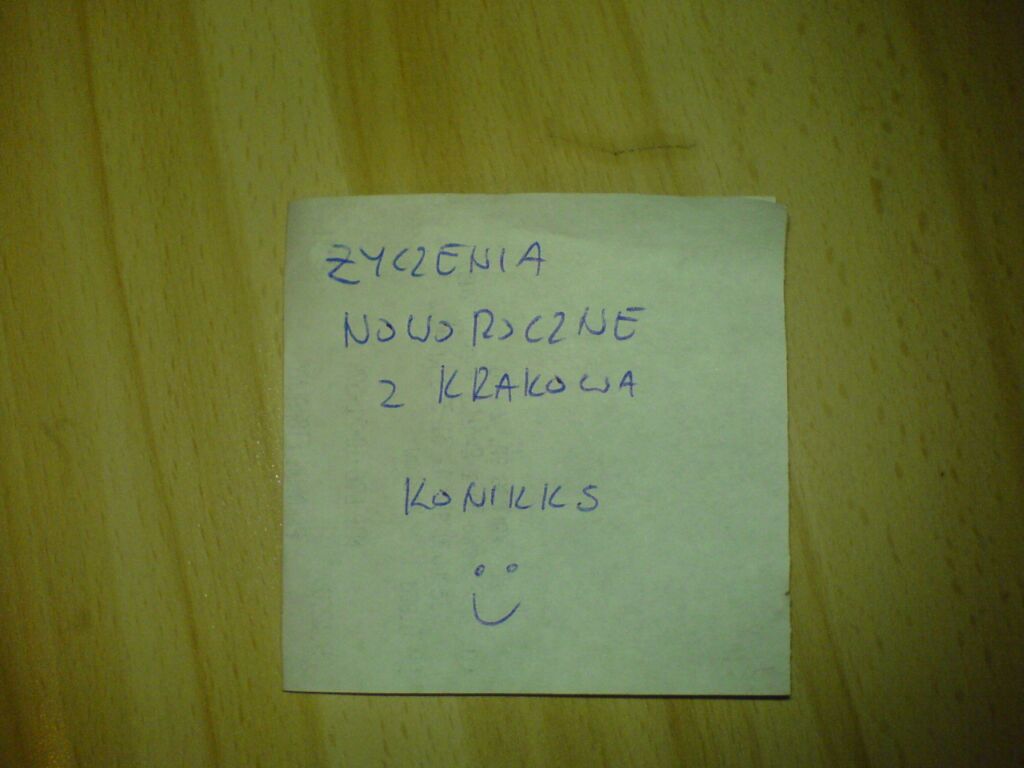 ŻYCZENIA
NOWOROCZNE
Z KRAKOWA
KONIKKS